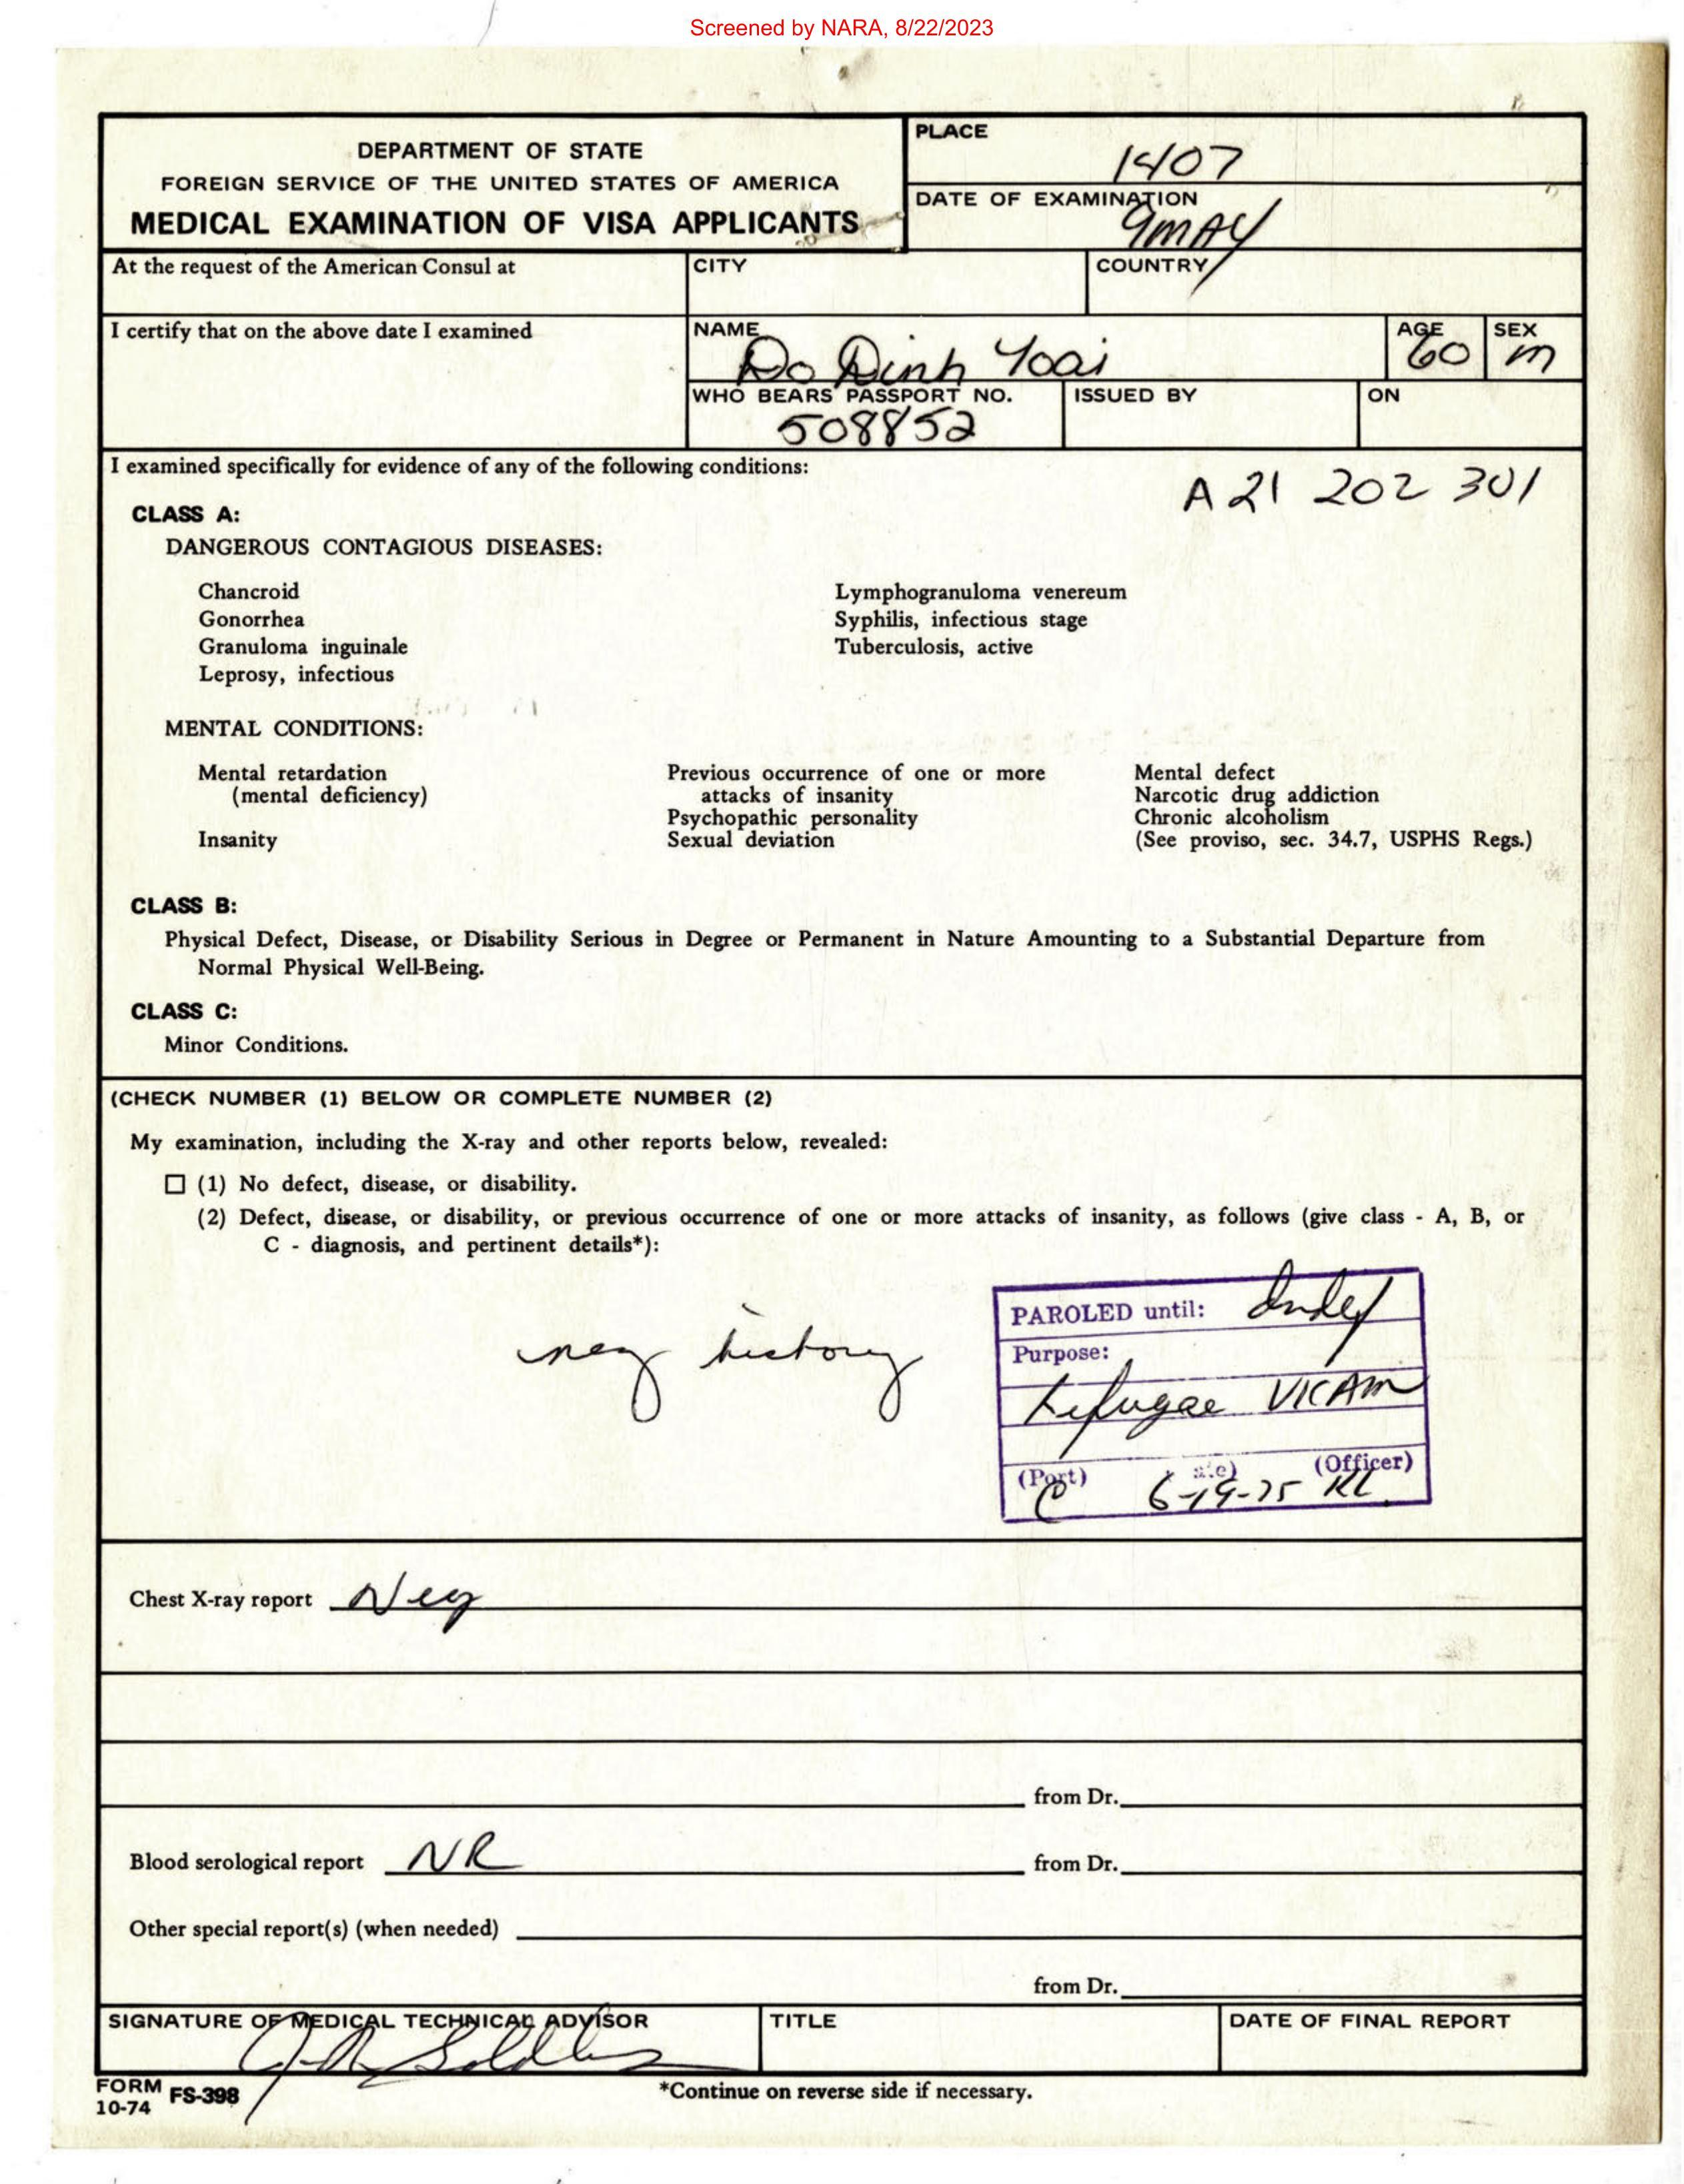 Screened by NARA, 8/22/2023
DEPARTMENT OF STATE
FOREIGN SERVICE OF THE UNITED STATES OF AMERICA
MEDICAL EXAMINATION OF VISA APPLICANTS
PLACE
1407
DATE OF EXAMINATION
9 MAY
At the request of the American Consul at
CITY
COUNTRY
I certify that on the above date I examined
NAME
Do Dinh Yoai
AGE
60
SEX
m
WHO BEARS PASSPORT NO.
508852
ISSUED BY
ON
I examined specifically for evidence of any of the following conditions:
A 21 202 301
CLASS A:
DANGEROUS CONTAGIOUS DISEASES:
Chancroid
Gonorrhea
Granuloma inguinale
Leprosy, infectious
Lymphogranuloma venereum
Syphilis, infectious stage
Tuberculosis, active
MENTAL CONDITIONS:
Mental retardation
(mental deficiency)
Insanity
Previous occurrence of one or more
attacks of insanity
Psychopathic personality
Sexual deviation
Mental defect
Narcotic drug addiction
Chronic alcoholism
(See proviso, sec. 34.7, USPHS Regs.)
CLASS B:
Physical Defect, Disease, or Disability Serious in Degree or Permanent in Nature Amounting to a Substantial Departure from
Normal Physical Well-Being.
CLASS C:
Minor Conditions.
(CHECK NUMBER (1) BELOW OR COMPLETE NUMBER (2)
My examination, including the X-ray and other reports below, revealed:
(1) No defect, disease, or disability.
(2) Defect, disease, or disability, or previous occurrence of one or more attacks of insanity, as follows (give class - A, B, or
C - diagnosis, and pertinent details*):
neg history
PAROLED until: Indef
Purpose:
Refugee
(Port) (Officer)
6-19-75
Chest X-ray report Neg
from Dr.
Blood serological report NR
from Dr.
Other special report(s) (when needed)
from Dr.
SIGNATURE OF MEDICAL TECHNICAL ADVISOR
TITLE
DATE OF FINAL REPORT
FORM
10-74 FS-398
*Continue on reverse side if necessary.